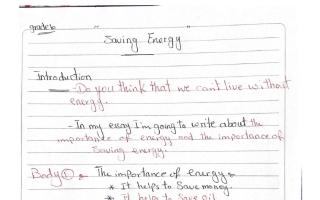 grade 6
"Saving Energy"
Introduction
- Do you think that we can't live without
energy.
- In my essay I'm going to write about the
importance of energy and the importance of
Saving energy.
Body ① The importance of energy
* It helps to Save money
* It helps to Save oil